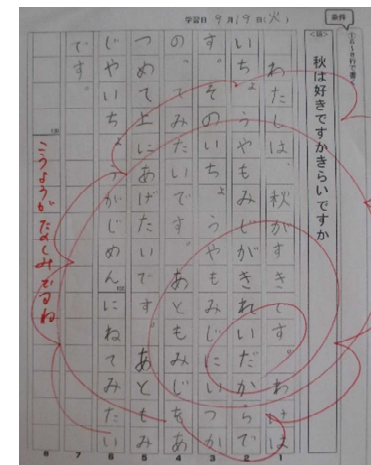 学習日 9月19日(火)
条件
①6~8行で書く
<題>
秋は好きですかきらいですか
わたしは、秋がすきです。わけは
いちょうやもみじがきれいだからで
す。そのいちょうやもみじにいつか
の、てみたいです。あともみじをあ
つめて上にあげたいです。あともみ
じやいちょうがじめんにねてみたい
です。
1
2
3
4
5
6
7
8
100
こうようが たのしみですね